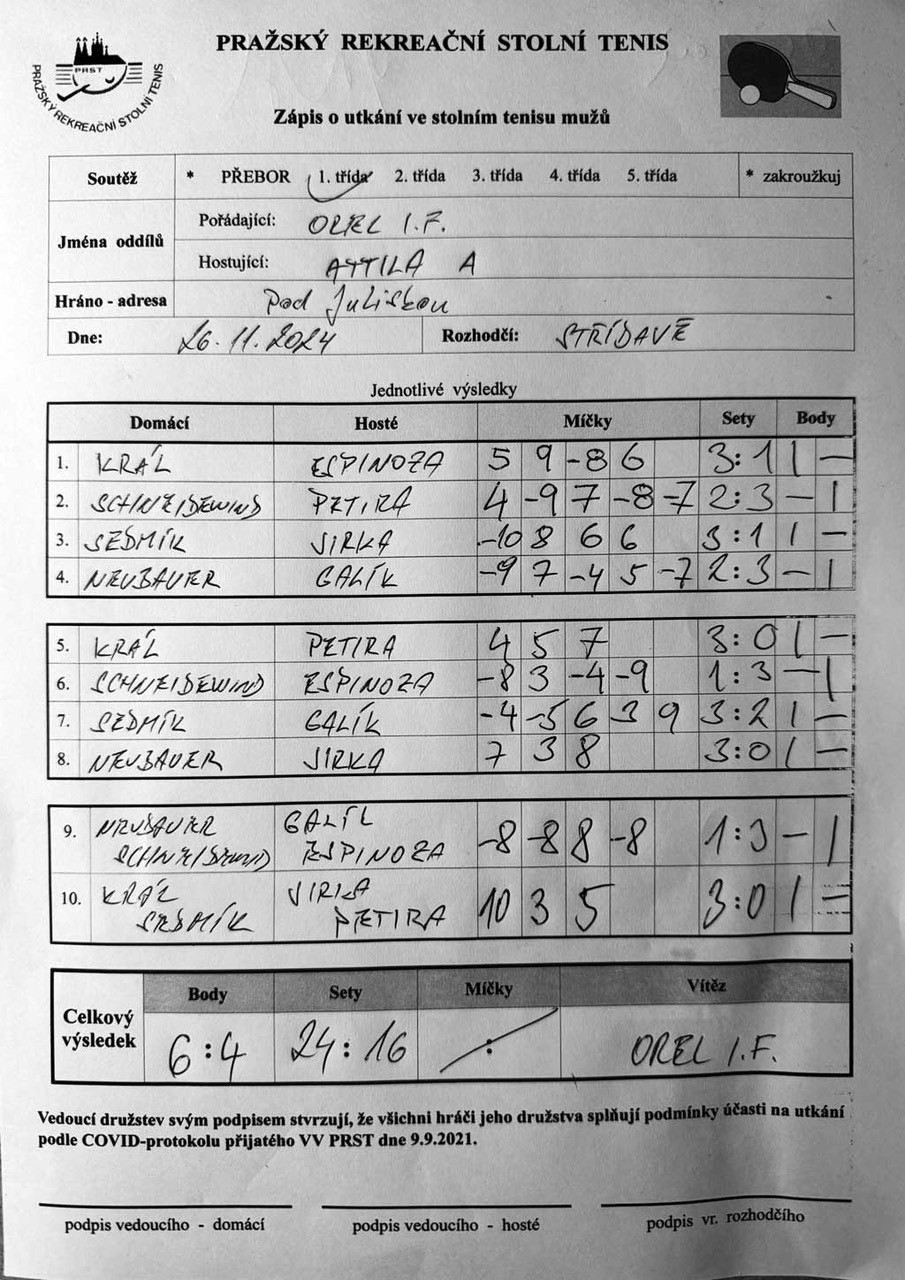 PRAŽSKÝ REKREAČNÍ STOLNÍ TENIS
PRST
PRAŽSKÝ REKREAČNÍ STOLNÍ TENIS
Zápis o utkání ve stolním tenisu mužů
Soutěž * PŘEBOR 1. třída 2. třída 3. třída 4. třída 5. třída * zakroužkuj
Jména oddílů
Pořádající: OREL I.F.
Hostující: ATTILA A
Hráno - adresa Pod Juliskou
Dne: 26.11.2024 Rozhodčí: STŘÍDAVĚ
Jednotlivé výsledky
Domácí Hosté Míčky Sety Body
1. KRÁL ESPINOZA 5 9 -8 6 3:1 1 -
2. SCHNEIDEWIND PETIRA 4 -9 7 -8 -7 2:3 - 1
3. SEDMÍK JIRKA -10 8 6 6 3:1 1 -
4. NEUBAUER GALÍK -9 7 -4 5 -7 2:3 - 1
5. KRÁL PETIRA 4 5 7 3:0 1 -
6. SCHNEIDEWIND ESPINOZA -8 3 -4 -9 1:3 - 1
7. SEDMÍK GALÍK -4 -5 6 3 9 3:2 1 -
8. NEUBAUER JIRKA 7 3 8 3:0 1 -
9. NEUBAUER GALÍK
SCHNEIDEWIND ESPINOZA -8 -8 8 -8 1:3 - 1
10. KRÁL JIRKA
SEDMÍK PETIRA 10 3 5 3:0 1 -
Celkový výsledek
Body Sety Míčky Vítěz
6:4 24:16 : OREL I.F.
Vedoucí družstev svým podpisem stvrzují, že všichni hráči jeho družstva splňují podmínky účasti na utkání
podle COVID-protokolu přijatého VV PRST dne 9.9.2021.
podpis vedoucího - domácí podpis vedoucího - hosté podpis vr. rozhodčího